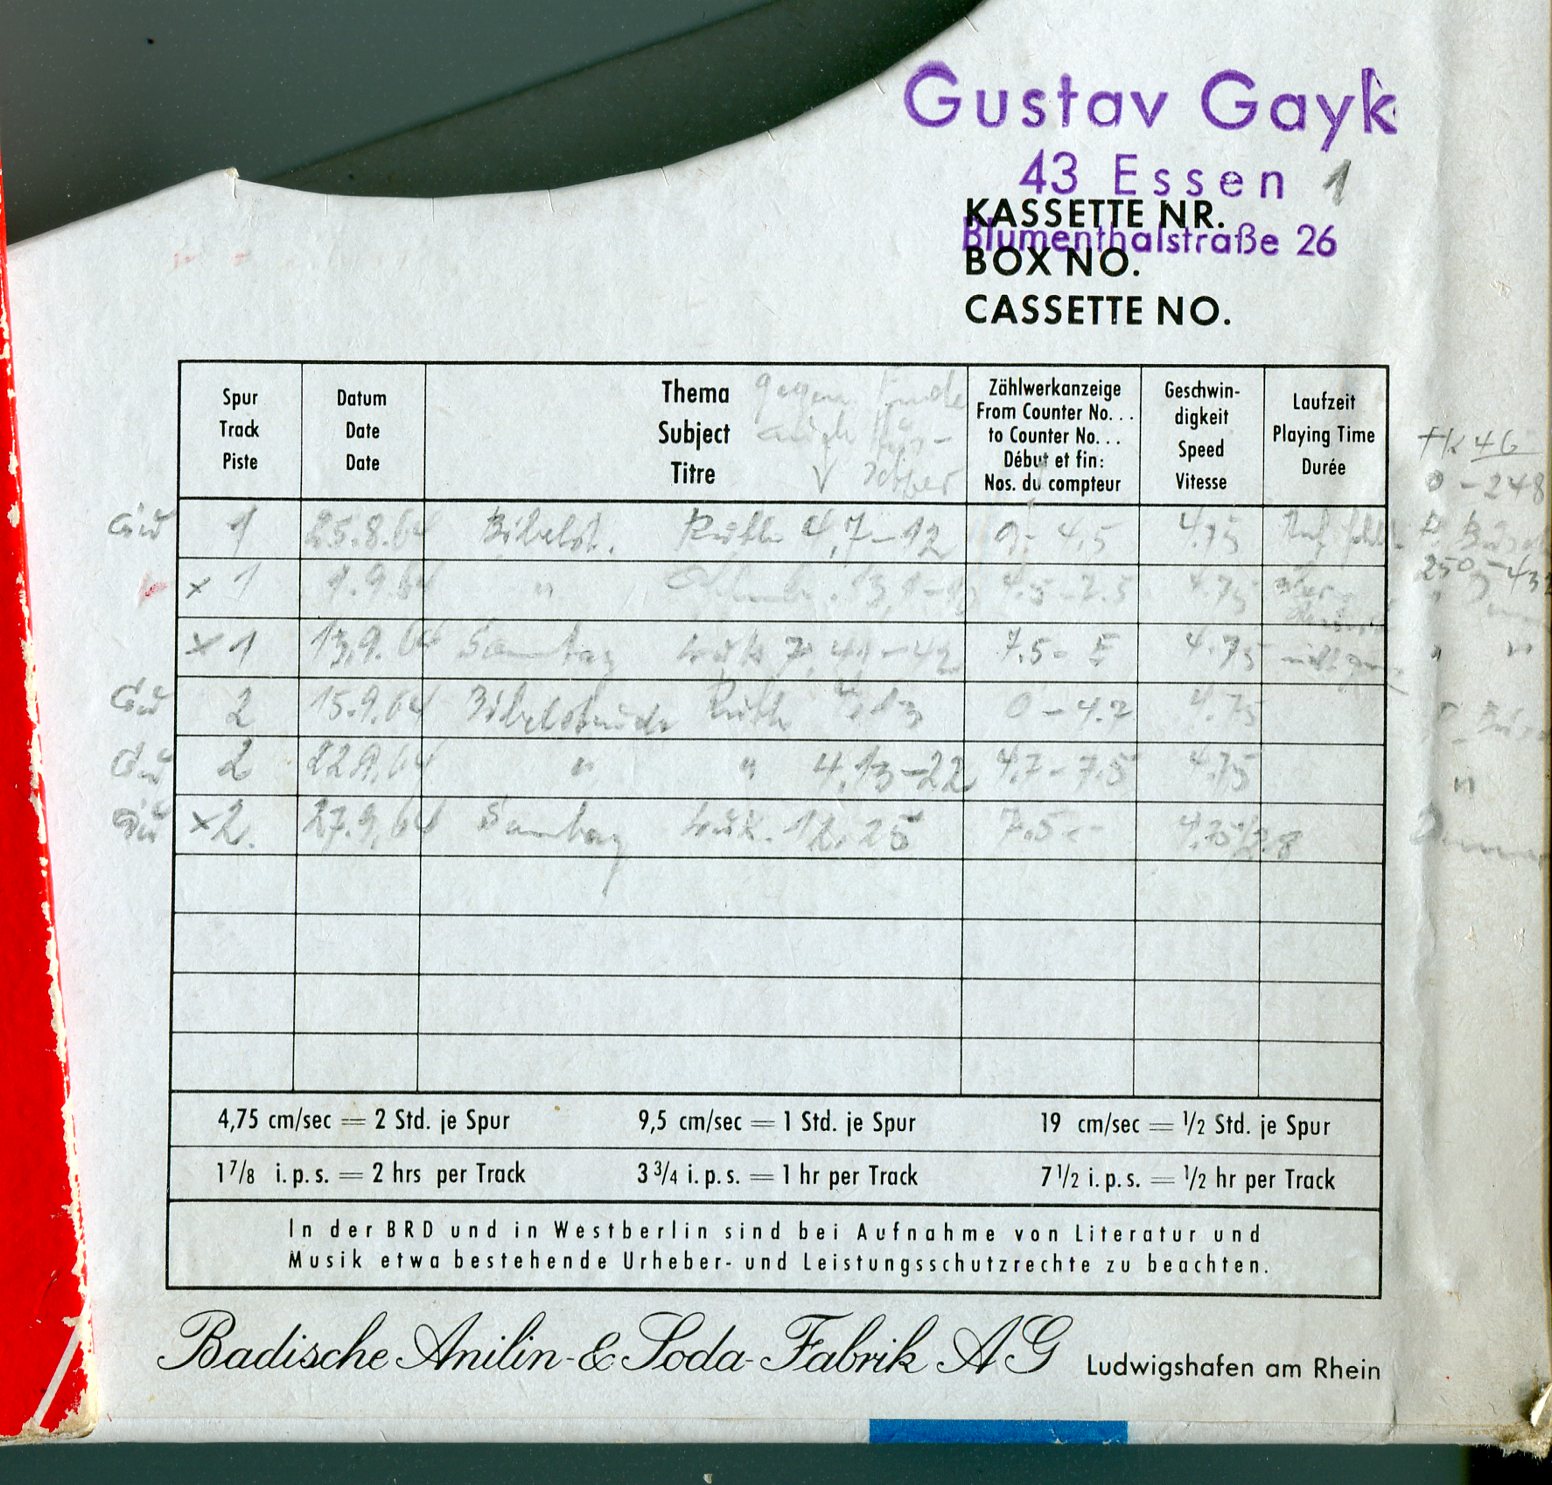 Gustav Gayk
43 Essen 1
KASSETTE NR.
Blumenthalstraße 26
BOX NO.
CASSETTE NO.
Spur Track Piste
Datum Date Date
Thema Subject Titre
gegen Ende auch
Zählwerkanzeige
From Counter No. . .
to Counter No. . .
Début et fin:
Nos. du compteur
Geschwin-
digkeit
Speed
Vitesse
Laufzeit
Playing Time
Durée
46
0 - 248
1 25.8.64 Bibelst. Ruth 4,7-12 0 - 4,5 4.75
x 1 1.9.64 " 13,1- 4.5 - 7.5 4.75
x 1 13.9.64 Sonntag Luk 7, 41-42 7.5 - E 4.75
2 15.9.64 Bibelstunde Ruth 4,13 0 - 4.7 4.75
2 22.9.64 " " 4.13-22 4.7 - 7.5 4.75
x 2. 27.9.64 Sonntag Luk. 12.25 7.5 - 4.75
4,75 cm/sec = 2 Std. je Spur 9,5 cm/sec = 1 Std. je Spur 19 cm/sec = 1/2 Std. je Spur
1 7/8 i.p.s. = 2 hrs per Track 3 3/4 i.p.s. = 1 hr per Track 7 1/2 i.p.s. = 1/2 hr per Track
In der BRD und in Westberlin sind bei Aufnahme von Literatur und
Musik etwa bestehende Urheber- und Leistungsschutzrechte zu beachten.
Badische Anilin- & Soda-Fabrik AG Ludwigshafen am Rhein